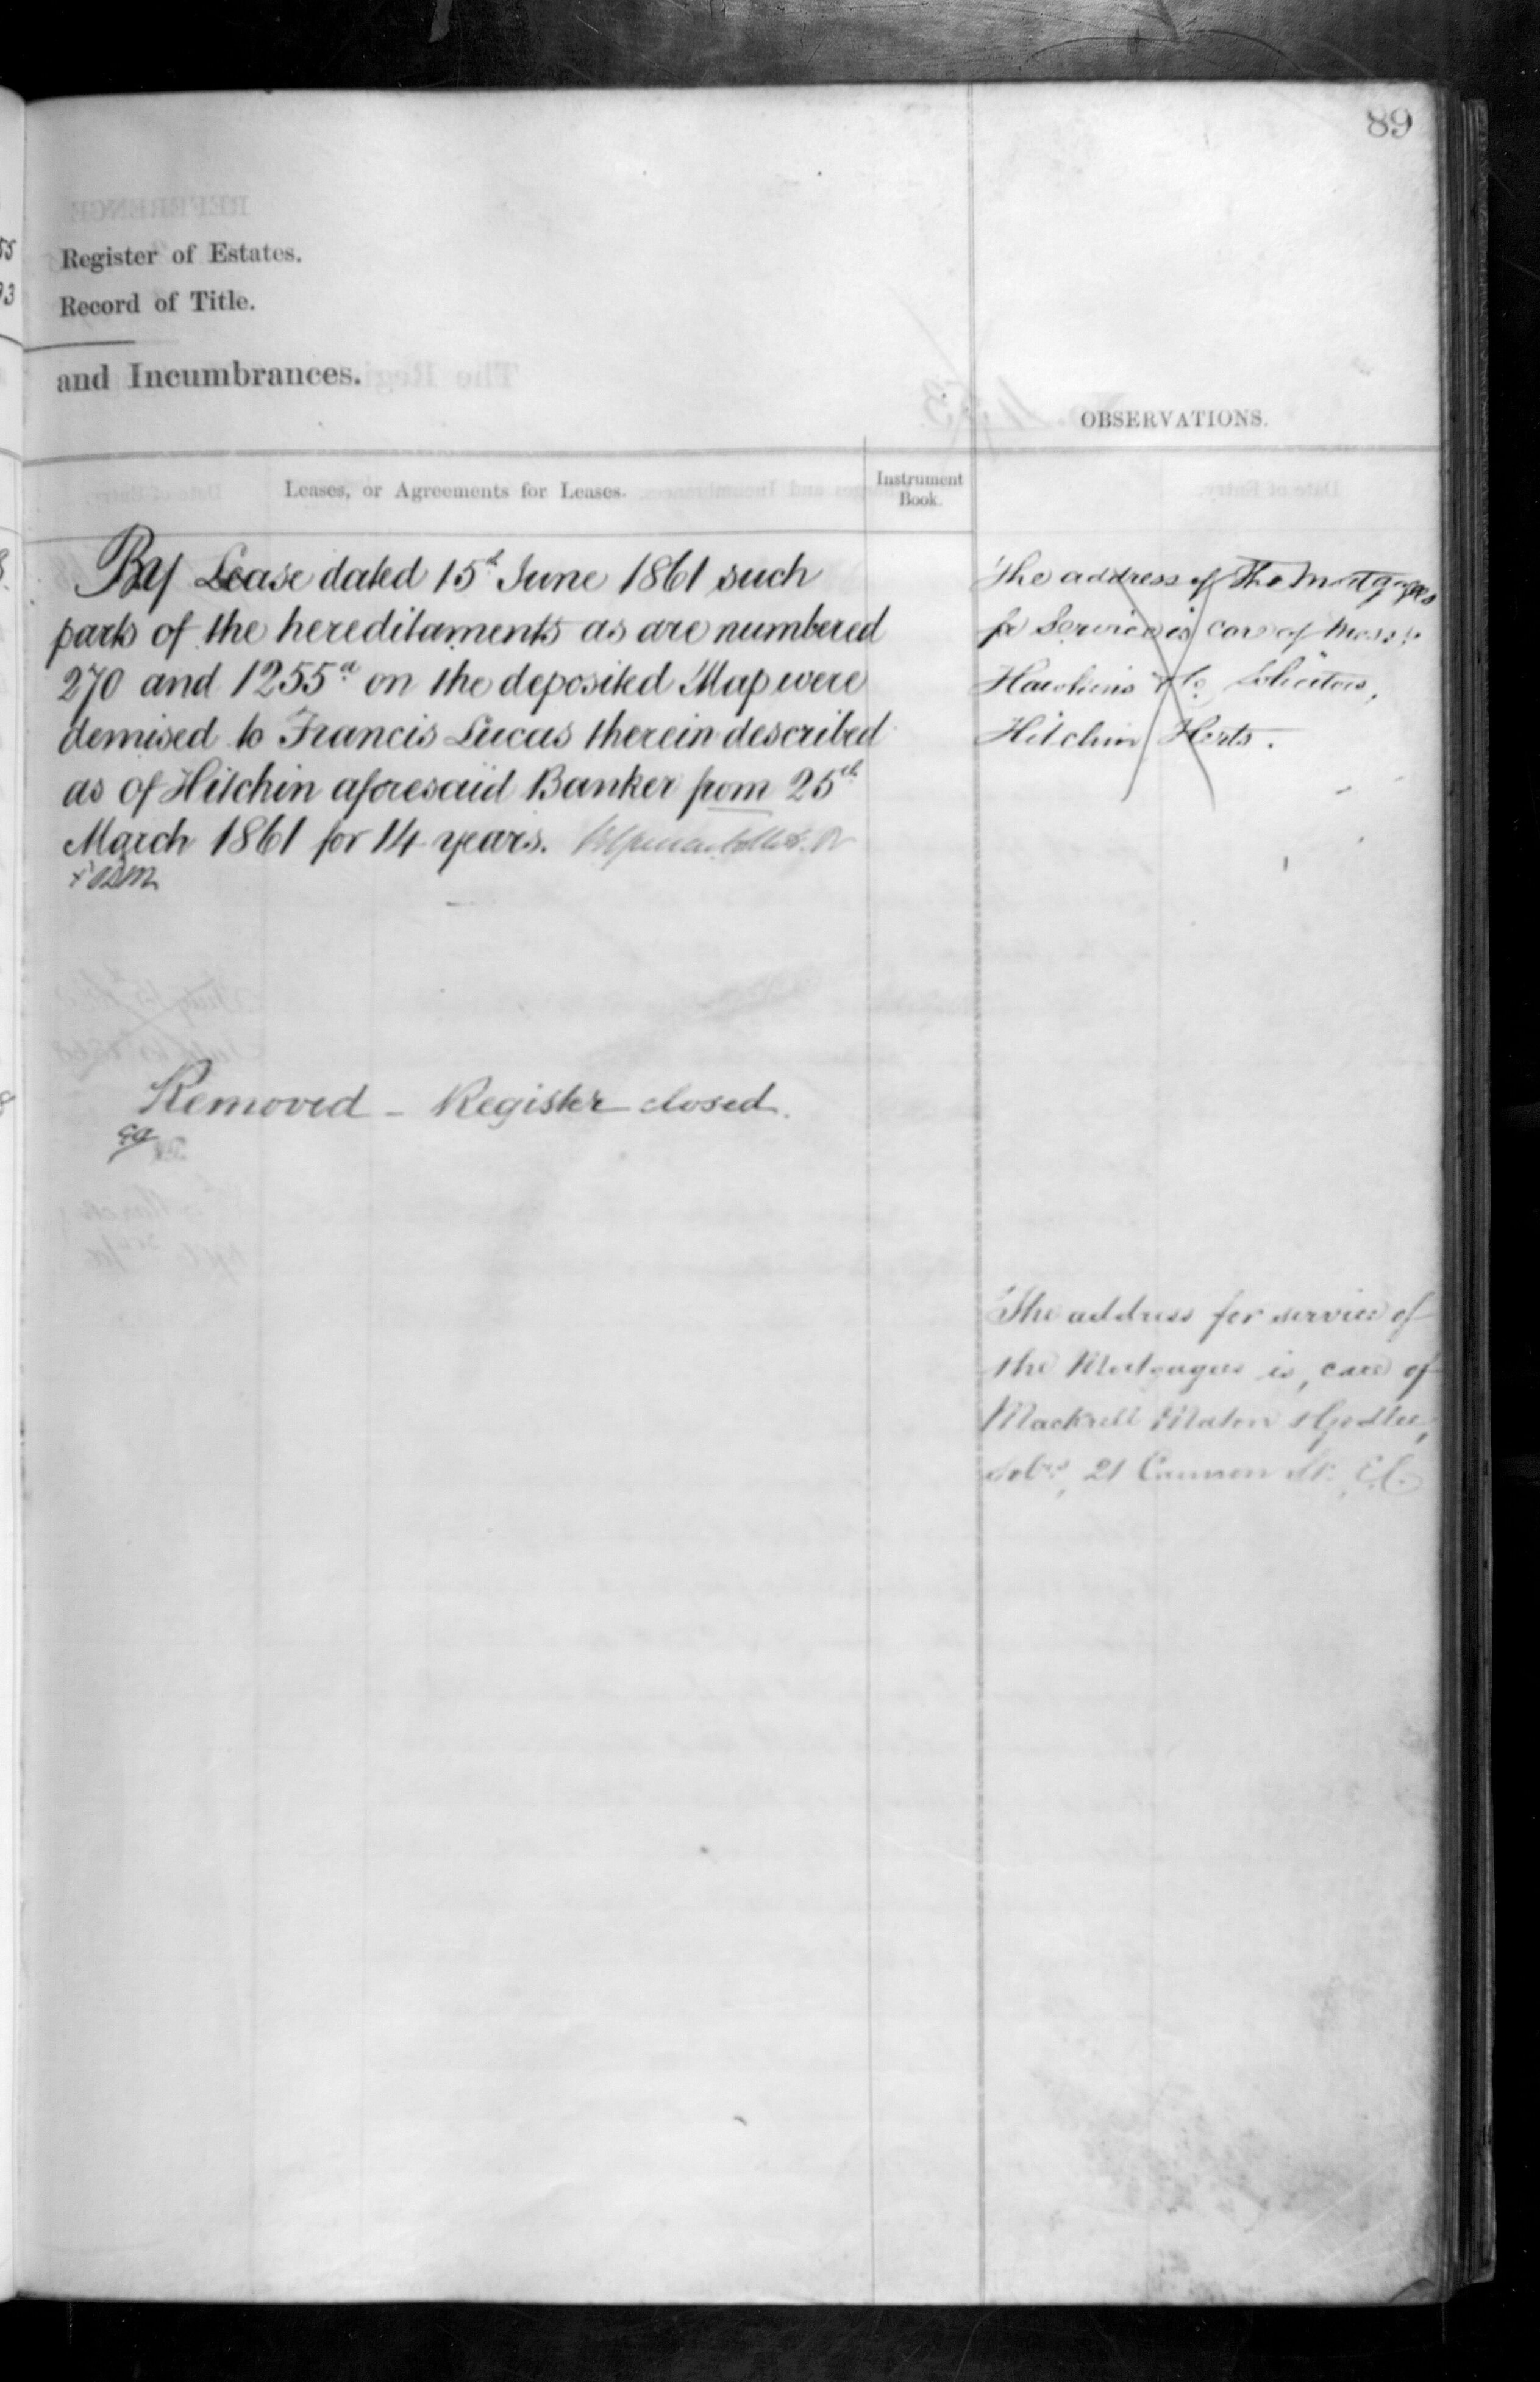 89
Register of Estates.
Record of Title.
and Incumbrances.
OBSERVATIONS.
Leases, or Agreements for Leases.
Instrument
Book.
By Lease dated 15th June 1861 such
parts of the hereditaments as are numbered
270 and 1255a on the deposited Map were
demised to Francis Lucas therein described
as of Hitchin aforesaid Banker from 25th
March 1861 for 14 years.
Removed - Register closed.
The address of the Mortgagees
for Service is care of Messrs
Hawkins & Co Solicitors,
Hitchin Herts.
The address for service of
the Mortgagees is, care of
Mackrell Maton & Godlee,
Solrs, 21 Cannon St. E.C.